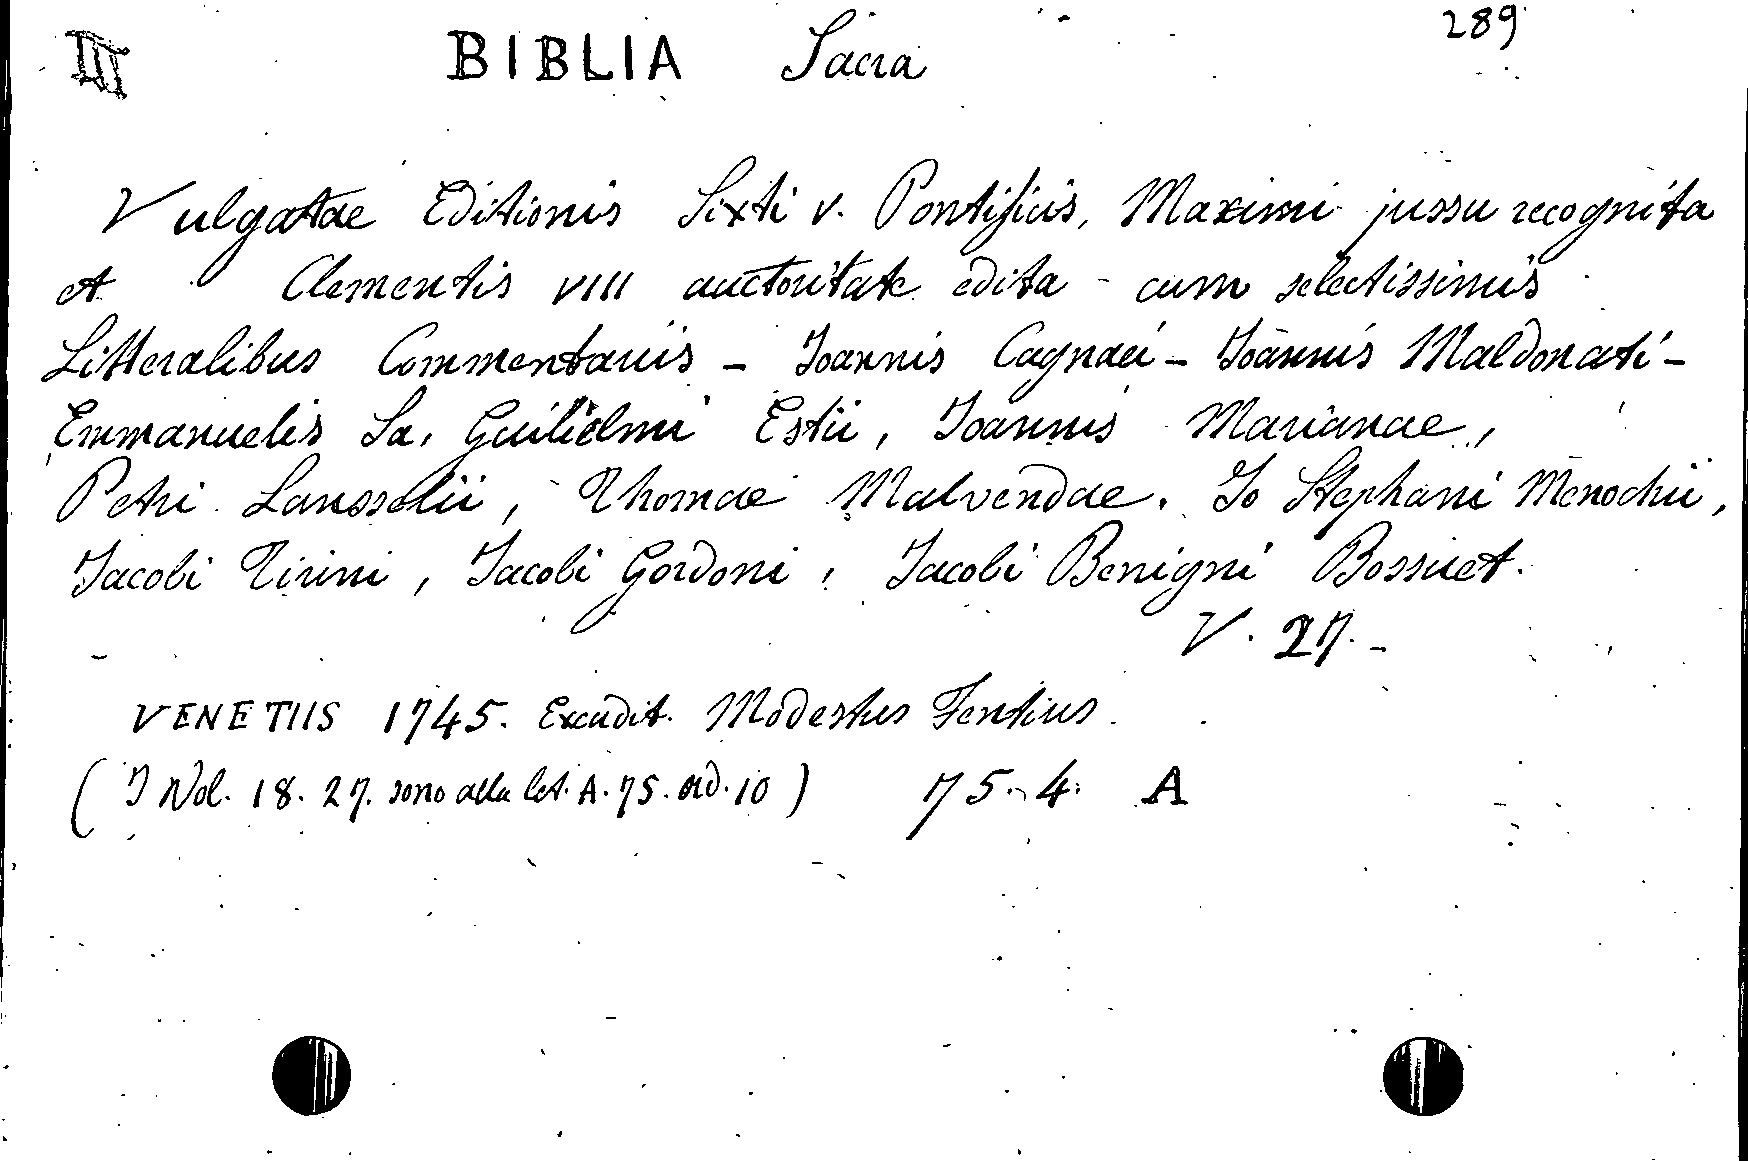 III BIBLIA Sacra 289
Vulgatae Editionis Sixti V. Pontificis, Maximi jussu recognita
et Clementis VIII auctoritate edita - cum selectissimis
Litteralibus Commentariis - Joannis Cagnaei - Joannis Maldonati -
Emmanuelis Sa, Guilielmi Estii, Joannis Marianae,
Petri Lansselii, Thomae Malvendae. Jo Stephani Menochii,
Jacobi Tirini, Jacobi Gordoni, Jacobi Benigni Bossuet.
V. 27. -
VENETIIS 1745. Excudit. Modestus Fentius.
(I Vol. 18. 27. sono alla let. A. 75. ord. 10) 75. 4. A